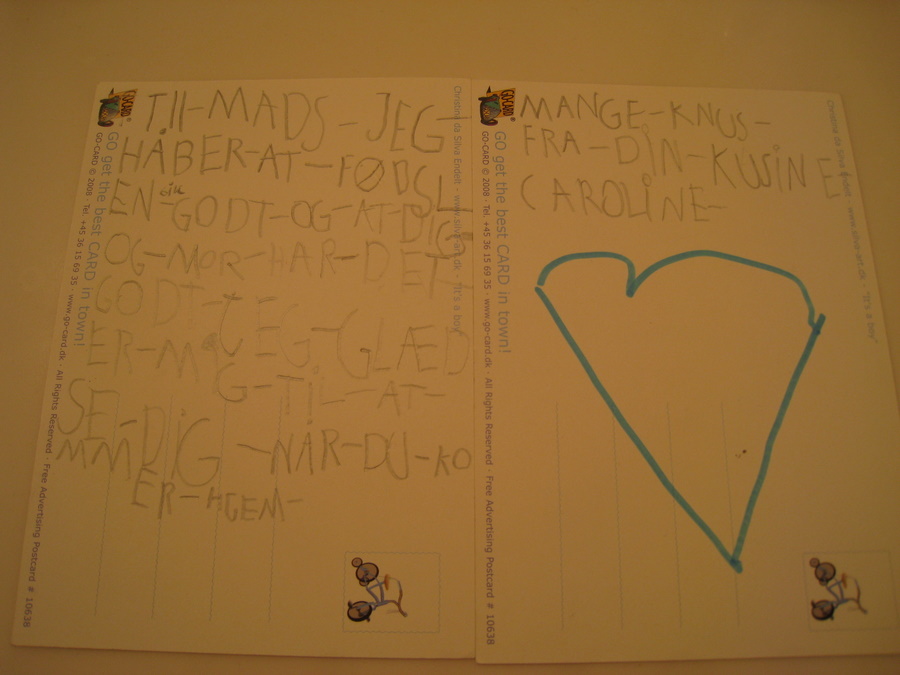 TIll-MADS-JEG
HÅBER-AT-FØDSL
EN-GIK
-GODT-OG-AT-DIG
OG-MOR-HAR-DET
GODT-JEG-GLÆD
ER-M
G-TIL-AT-
SE-DIG-NÅR-DU-KO
MM
ER-HGEM-
GO-CARD
GO get the best CARD in town!
GO-CARD © 2008 · Tel. +45 36 15 69 35 · www.go-card.dk · All Rights Reserved · Free Advertising Postcard # 10638
Christina da Silva Endelt · www.silva-art.dk · "It's a boy"
MANGE-KNUS-
FRA-DIN-KUSINE
CAROLINE-
GO-CARD
GO get the best CARD in town!
GO-CARD © 2008 · Tel. +45 36 15 69 35 · www.go-card.dk · All Rights Reserved · Free Advertising Postcard # 10638
Christina da Silva Endelt · www.silva-art.dk · "It's a boy"